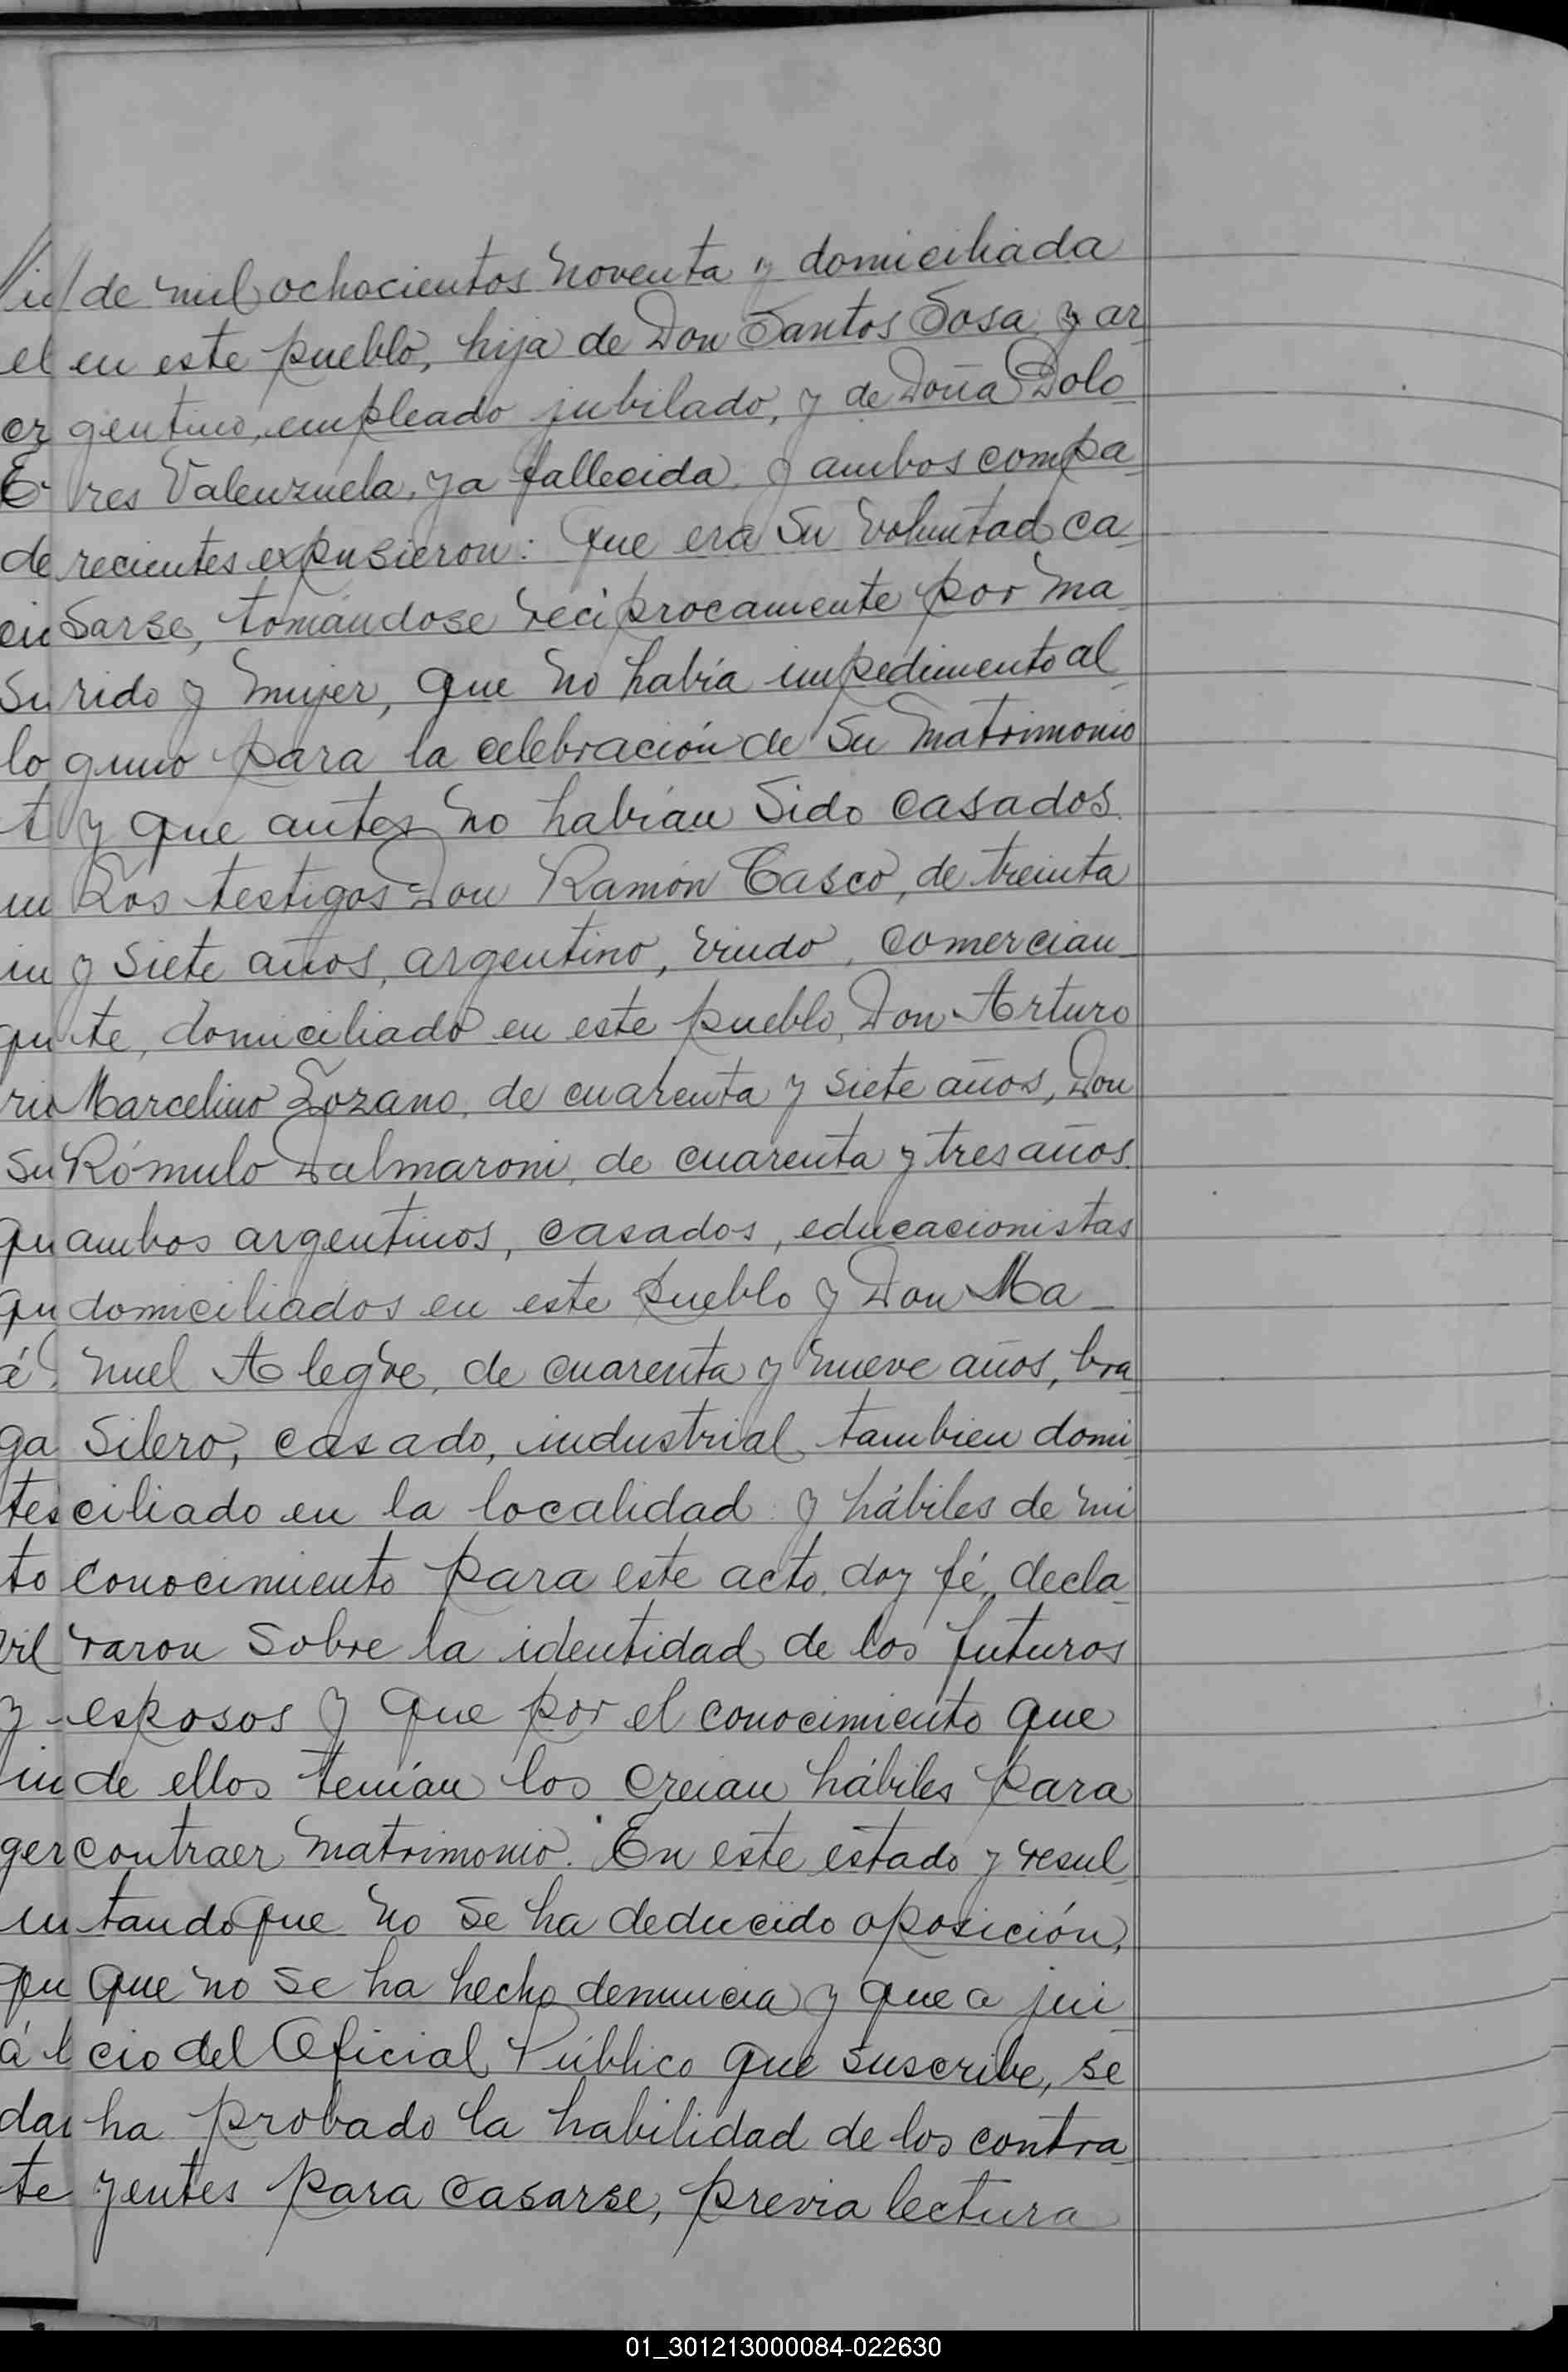 de mil ochocientos noventa y domiciliada
en este pueblo, hija de Don Santos Sosa y ar
gentino, empleado jubilado, y de Doña Dolo
res Valenzuela, ya fallecida y ambos compa
recientes expusieron: Que era su voluntad ca
sarse, tomándose reciprocamente por ma
rido y mujer, que no había impedimento al
guno para la celebración de su matrimonio
y que antes no habían sido casados.
Los testigos Don Ramón Casco, de treinta
y siete años, argentino, viudo, comercian
te, domiciliado en este pueblo, Don Arturo
Marcelino Lozano, de cuarenta y siete años, Don
Rómulo Dalmaroni, de cuarenta y tres años.
ambos argentinos, casados, educacionistas
domiciliados en este pueblo y Don Ma-
nuel Alegre, de cuarenta y nueve años, bra
silero, casado, industrial tambien domi
ciliado en la localidad y hábiles de mi
conocimiento para este acto, doy fé, decla
raron sobre la identidad de los futuros
esposos y que por el conocimiento que
de ellos tenían los creian hábiles para
contraer matrimonio. En este estado y resul
tando que no se ha deducido oposición,
que no se ha hecho denuncia y que a jui
cio del Oficial Público que suscribe, se
ha probado la habilidad de los contra
yentes para casarse, previa lectura
01_301213000084-022630